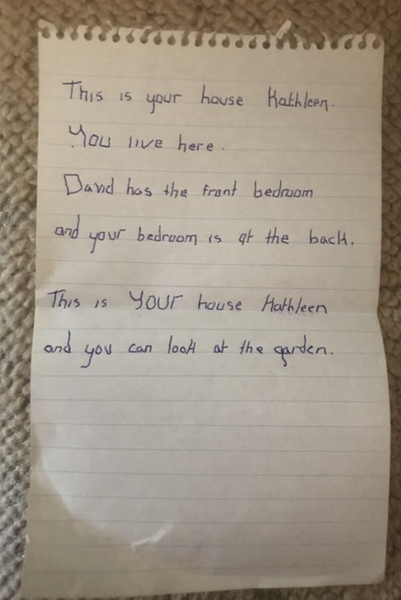 This is your house Kathleen.
You live here.
David has the front bedroom
and your bedroom is at the back.
This is YOUR house Kathleen
and you can look at the garden.